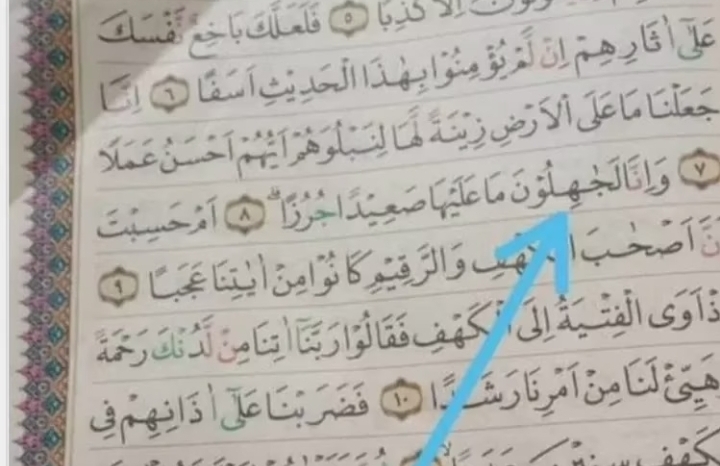 اِلَّا كَذِبًا ٥ فَلَعَلَّكَ بَاخِعٌ نَّفْسَكَ
عَلٰٓى اٰثَارِهِمْ اِنْ لَّمْ يُؤْمِنُوْا بِهٰذَا الْحَدِيْثِ اَسَفًا ٦ اِنَّا
جَعَلْنَا مَا عَلَى الْاَرْضِ زِيْنَةً لَّهَا لِنَبْلُوَهُمْ اَيُّهُمْ اَحْسَنُ عَمَلًا
٧ وَاِنَّا لَجٰهِلُوْنَ مَا عَلَيْهَا صَعِيْدًا جُرُزًاۗ ٨ اَمْ حَسِبْتَ
نَّ اَصْحٰبَ الْكَهْفِ وَالرَّقِيْمِ كَانُوْا مِنْ اٰيٰتِنَا عَجَبًا ٩
ذْ اَوَى الْفِتْيَةُ اِلَى الْكَهْفِ فَقَالُوْا رَبَّنَآ اٰتِنَا مِنْ لَّدُنْكَ رَحْمَةً
هَيِّئْ لَنَا مِنْ اَمْرِنَا رَشَدًا ١٠ فَضَرَبْنَا عَلٰٓى اٰذَانِهِمْ فِى